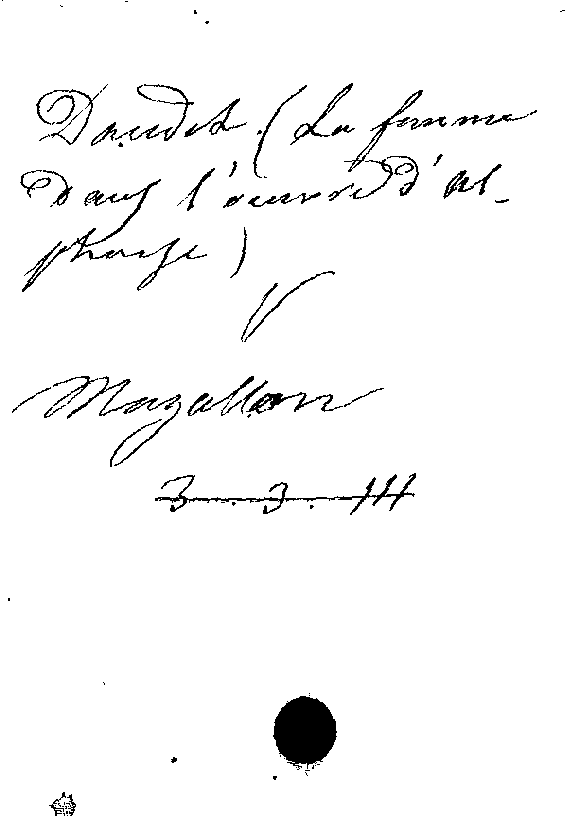 Daudet (La femme
dans l'œuvre d'Al-
phonse)
V
Magallon
3.3.111